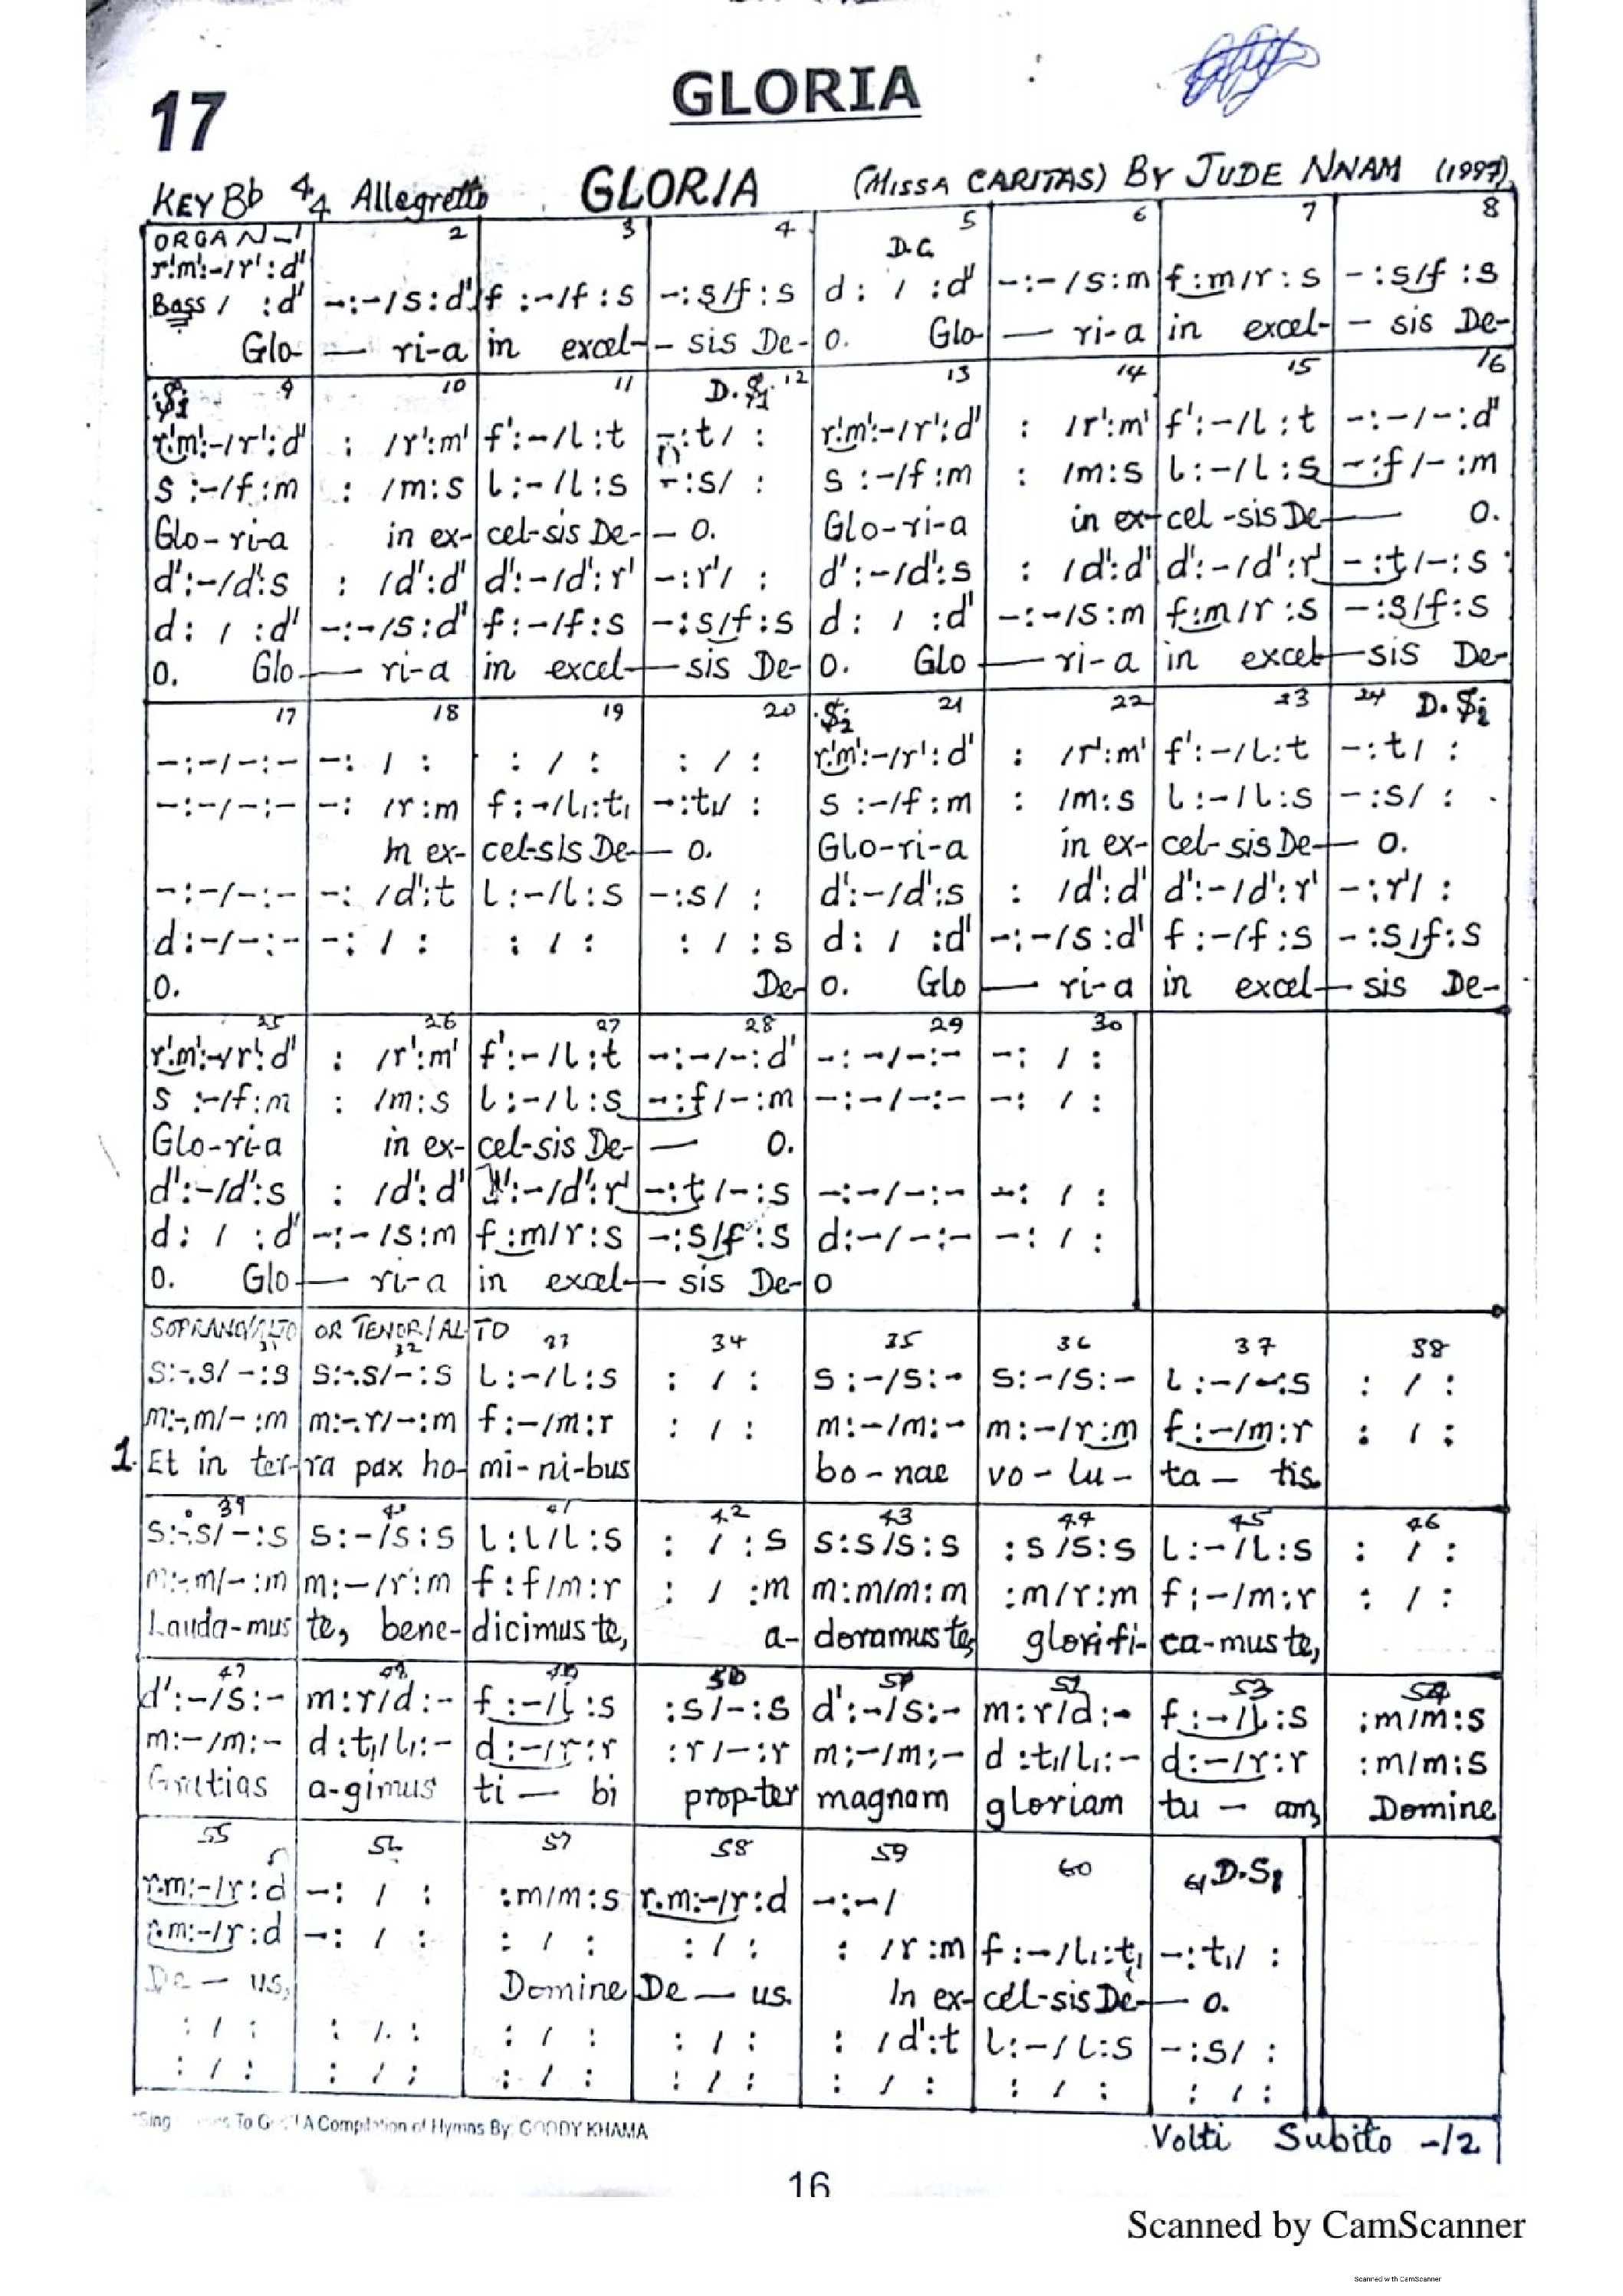 17
GLORIA
KEY Bb 4/4 Allegretto GLORIA (MISSA CARITAS) BY JUDE NNAM (1997)
ORGAN-1 2 3 4 5 6 7 8
r'.m':-/r':d' D.C.
Bass / :d' -:-/s:d' f:-/f:s -:s/f:s d: / :d' -:-/s:m f:m/r:s -:s/f:s
Glo- — ri-a in excel- - sis De- o. Glo- — ri-a in excel- - sis De-
𝄋1 9 10 11 D.𝄋1 12 13 14 15 16
r'.m':-/r':d' : /r':m' f':-/l:t -:t/ : r'.m':-/r':d' : /r':m' f':-/l:t -:-/-:d'
s:-/f:m : /m:s l:-/l:s -:s/ : s:-/f:m : /m:s l:-/l:s -:f/-:m
Glo-ri-a in ex- cel-sis De- - o. Glo-ri-a in ex- cel-sis De- — o.
d':-/d':s : /d':d' d':-/d':r' -:r'/ : d':-/d':s : /d':d' d':-/d':r' -:t/-:s
d: / :d' -:-/s:d' f:-/f:s -:s/f:s d: / :d' -:-/s:m f:m/r:s -:s/f:s
o. Glo- — ri-a in excel- — sis De- o. Glo — ri-a in excel- — sis De-
17 18 19 20 𝄋2 21 22 23 24 D.𝄋2
-:-/-:- -: / : : / : : / : r'.m':-/r':d' : /r':m' f':-/l:t -:t/ :
-:-/-:- -: /r:m f:-/l₁:t₁ -:t₁/ : s:-/f:m : /m:s l:-/l:s -:s/ :
In ex- cel-sis De- — o. Glo-ri-a in ex- cel-sis De- — o.
-:-/-:- -: /d':t l:-/l:s -:s/ : d':-/d':s : /d':d' d':-/d':r' -:r'/ :
d:-/-:- -: / : : / : : / :s d: / :d' -:-/s:d' f:-/f:s -:s/f:s
o. De- o. Glo — ri-a in excel — sis De-
25 26 27 28 29 30
r'.m':-/r':d' : /r':m' f':-/l:t -:-/-:d' -:-/-:- -: / :
s:-/f:m : /m:s l:-/l:s -:f/-:m -:-/-:- -: / :
Glo-ri-a in ex- cel-sis De- — o.
d':-/d':s : /d':d' d':-/d':r' -:t/-:s -:-/-:- -: / :
d: / :d' -:-/s:m f:m/r:s -:s/f:s d:-/-:- -: / :
o. Glo- — ri-a in excel- — sis De- o
SOPRANO/ALTO OR TENOR/ALTO
31 32 33 34 35 36 37 38
s:-.s/-:s s:-.s/-:s l:-/l:s : / : s:-/s:- s:-/s:- l:-/-:s : / :
m:-.m/-:m m:-.r/-:m f:-/m:r : / : m:-/m:- m:-/r:m f:-/m:r : / :
1. Et in ter- ra pax ho- mi-ni-bus bo-nae vo-lu- ta — tis
39 40 41 42 43 44 45 46
s:-.s/-:s s:-/s:s l:l/l:s : / :s s:s/s:s :s/s:s l:-/l:s : / :
m:-.m/-:m m:-/r:m f:f/m:r : / :m m:m/m:m :m/r:m f:-/m:r : / :
Lauda-mus te, bene- dicimus te, a- doramus te, glorifi- ca-mus te,
47 48 49 50 51 52 53 54
d':-/s:- m:r/d:- f:-/l:s :s/-:s d':-/s:- m:r/d:- f:-/l:s :m/m:s
m:-/m:- d:t₁/l₁:- d:-/r:r :r/-:r m:-/m:- d:t₁/l₁:- d:-/r:r :m/m:s
Gratias a-gimus ti — bi prop-ter magnam gloriam tu — am, Domine
55 56 57 58 59 60 61 D.S1
r.m:-/r:d -: / : :m/m:s r.m:-/r:d -:-/
r.m:-/r:d -: / : : / : : / : : /r:m f:-/l₁:t₁ -:t₁/ :
De — us, Domine De — us. In ex- cel-sis De- — o.
: / : : / : : / : : / : : /d':t l:-/l:s -:s/ :
: / : : / : : / : : / : : / : : / : : / :
"Sing To God" A Compilation of Hymns By: GODDY KHAMA
Volti Subito -/2
16
Scanned by CamScanner
Scanned with CamScanner